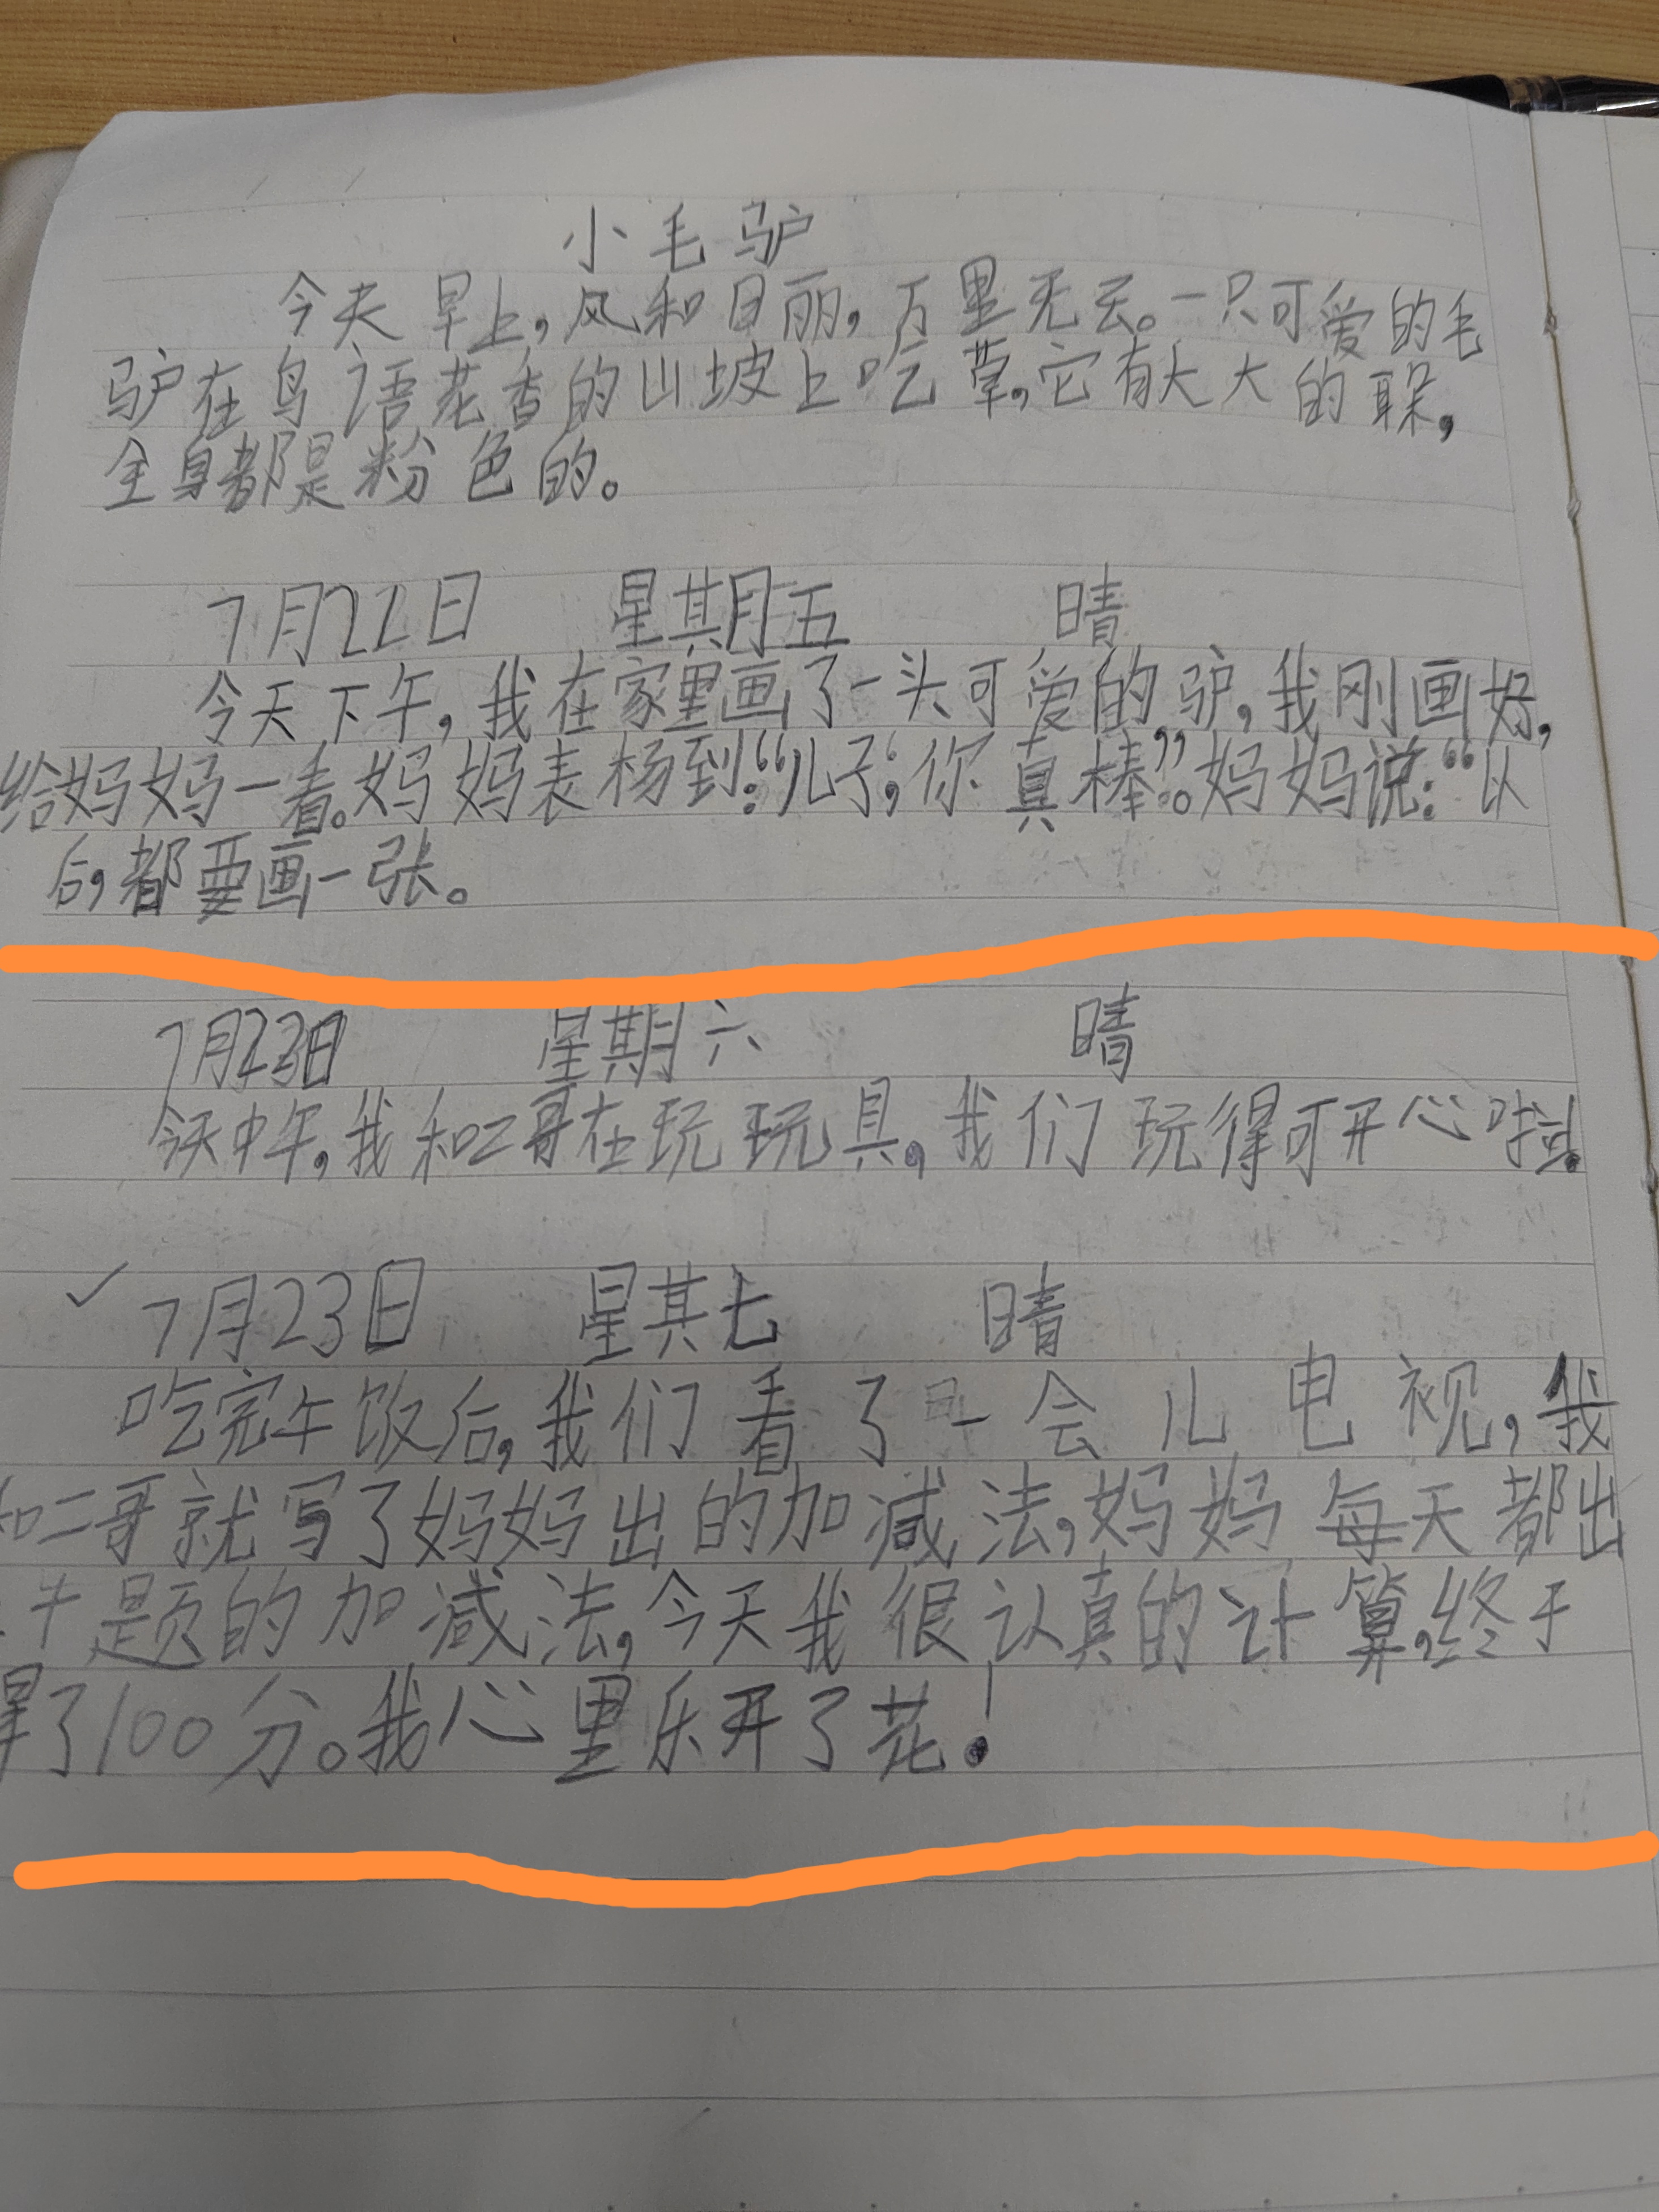 小毛驴
今天早上,风和日丽,万里无云。一只可爱的毛
驴在鸟语花香的山坡上吃草,它有大大的耳朵,
全身都是粉色的。
7月22日 星期五 晴
今天下午,我在家里画了一头可爱的驴,我刚画好,
给妈妈一看。妈妈表杨到:“儿子,你真棒”。妈妈说:“以
后,都要画一张。
7月23日 星期六 晴
今天中午,我和二哥在玩玩具,我们玩得可开心啦。
7月23日 星其七 晴
吃完午饭后,我们看了一会儿电视,我
和二哥就写了妈妈出的加减法,妈妈每天都出
题的加减法,今天我很认真的计算,终于
得了100分。我心里乐开了花!